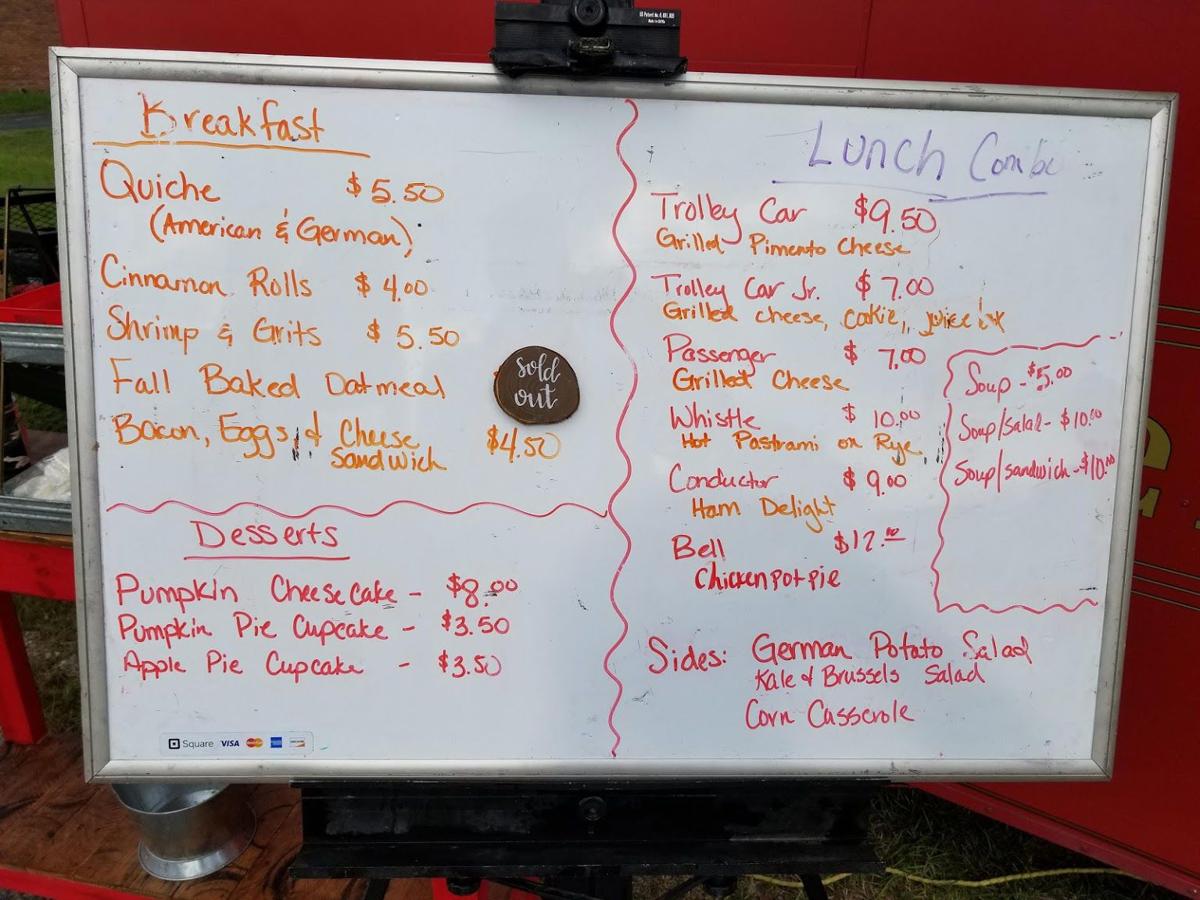 Breakfast
Quiche $5.50
(American & German)
Cinnamon Rolls $4.00
Shrimp & Grits $5.50
Fall Baked Oatmeal
sold
out
Bacon, Eggs, & Cheese $4.50
Sandwich
Desserts
Pumpkin Cheesecake - $8.00
Pumpkin Pie Cupcake - $3.50
Apple Pie Cupcake - $3.50
Square VISA
Lunch Combo
Trolley Car $9.50
Grilled Pimento Cheese
Trolley Car Jr. $7.00
Grilled cheese, cookie, juice
Passenger $7.00
Grilled Cheese
Whistle $10.00
Hot Pastrami on Rye
Conductor $9.00
Ham Delight
Bell $12.00
Chicken pot pie
Soup - $5.00
Soup/salad - $10.00
Soup/sandwich - $10.00
Sides: German Potato Salad
Kale & Brussels Salad
Corn Casserole